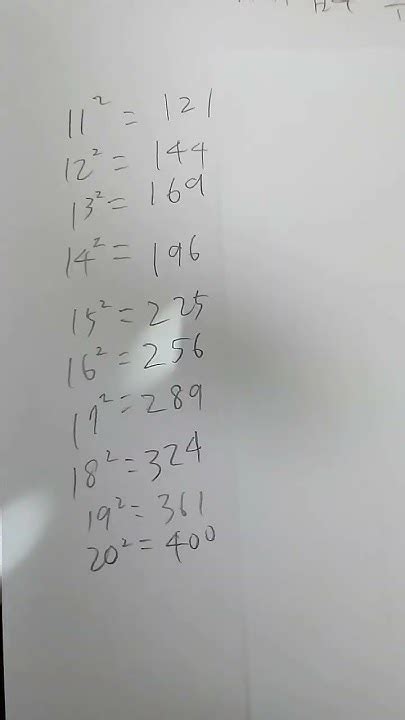 11² = 121
12² = 144
13² = 169
14² = 196
15² = 225
16² = 256
17² = 289
18² = 324
19² = 361
20² = 400